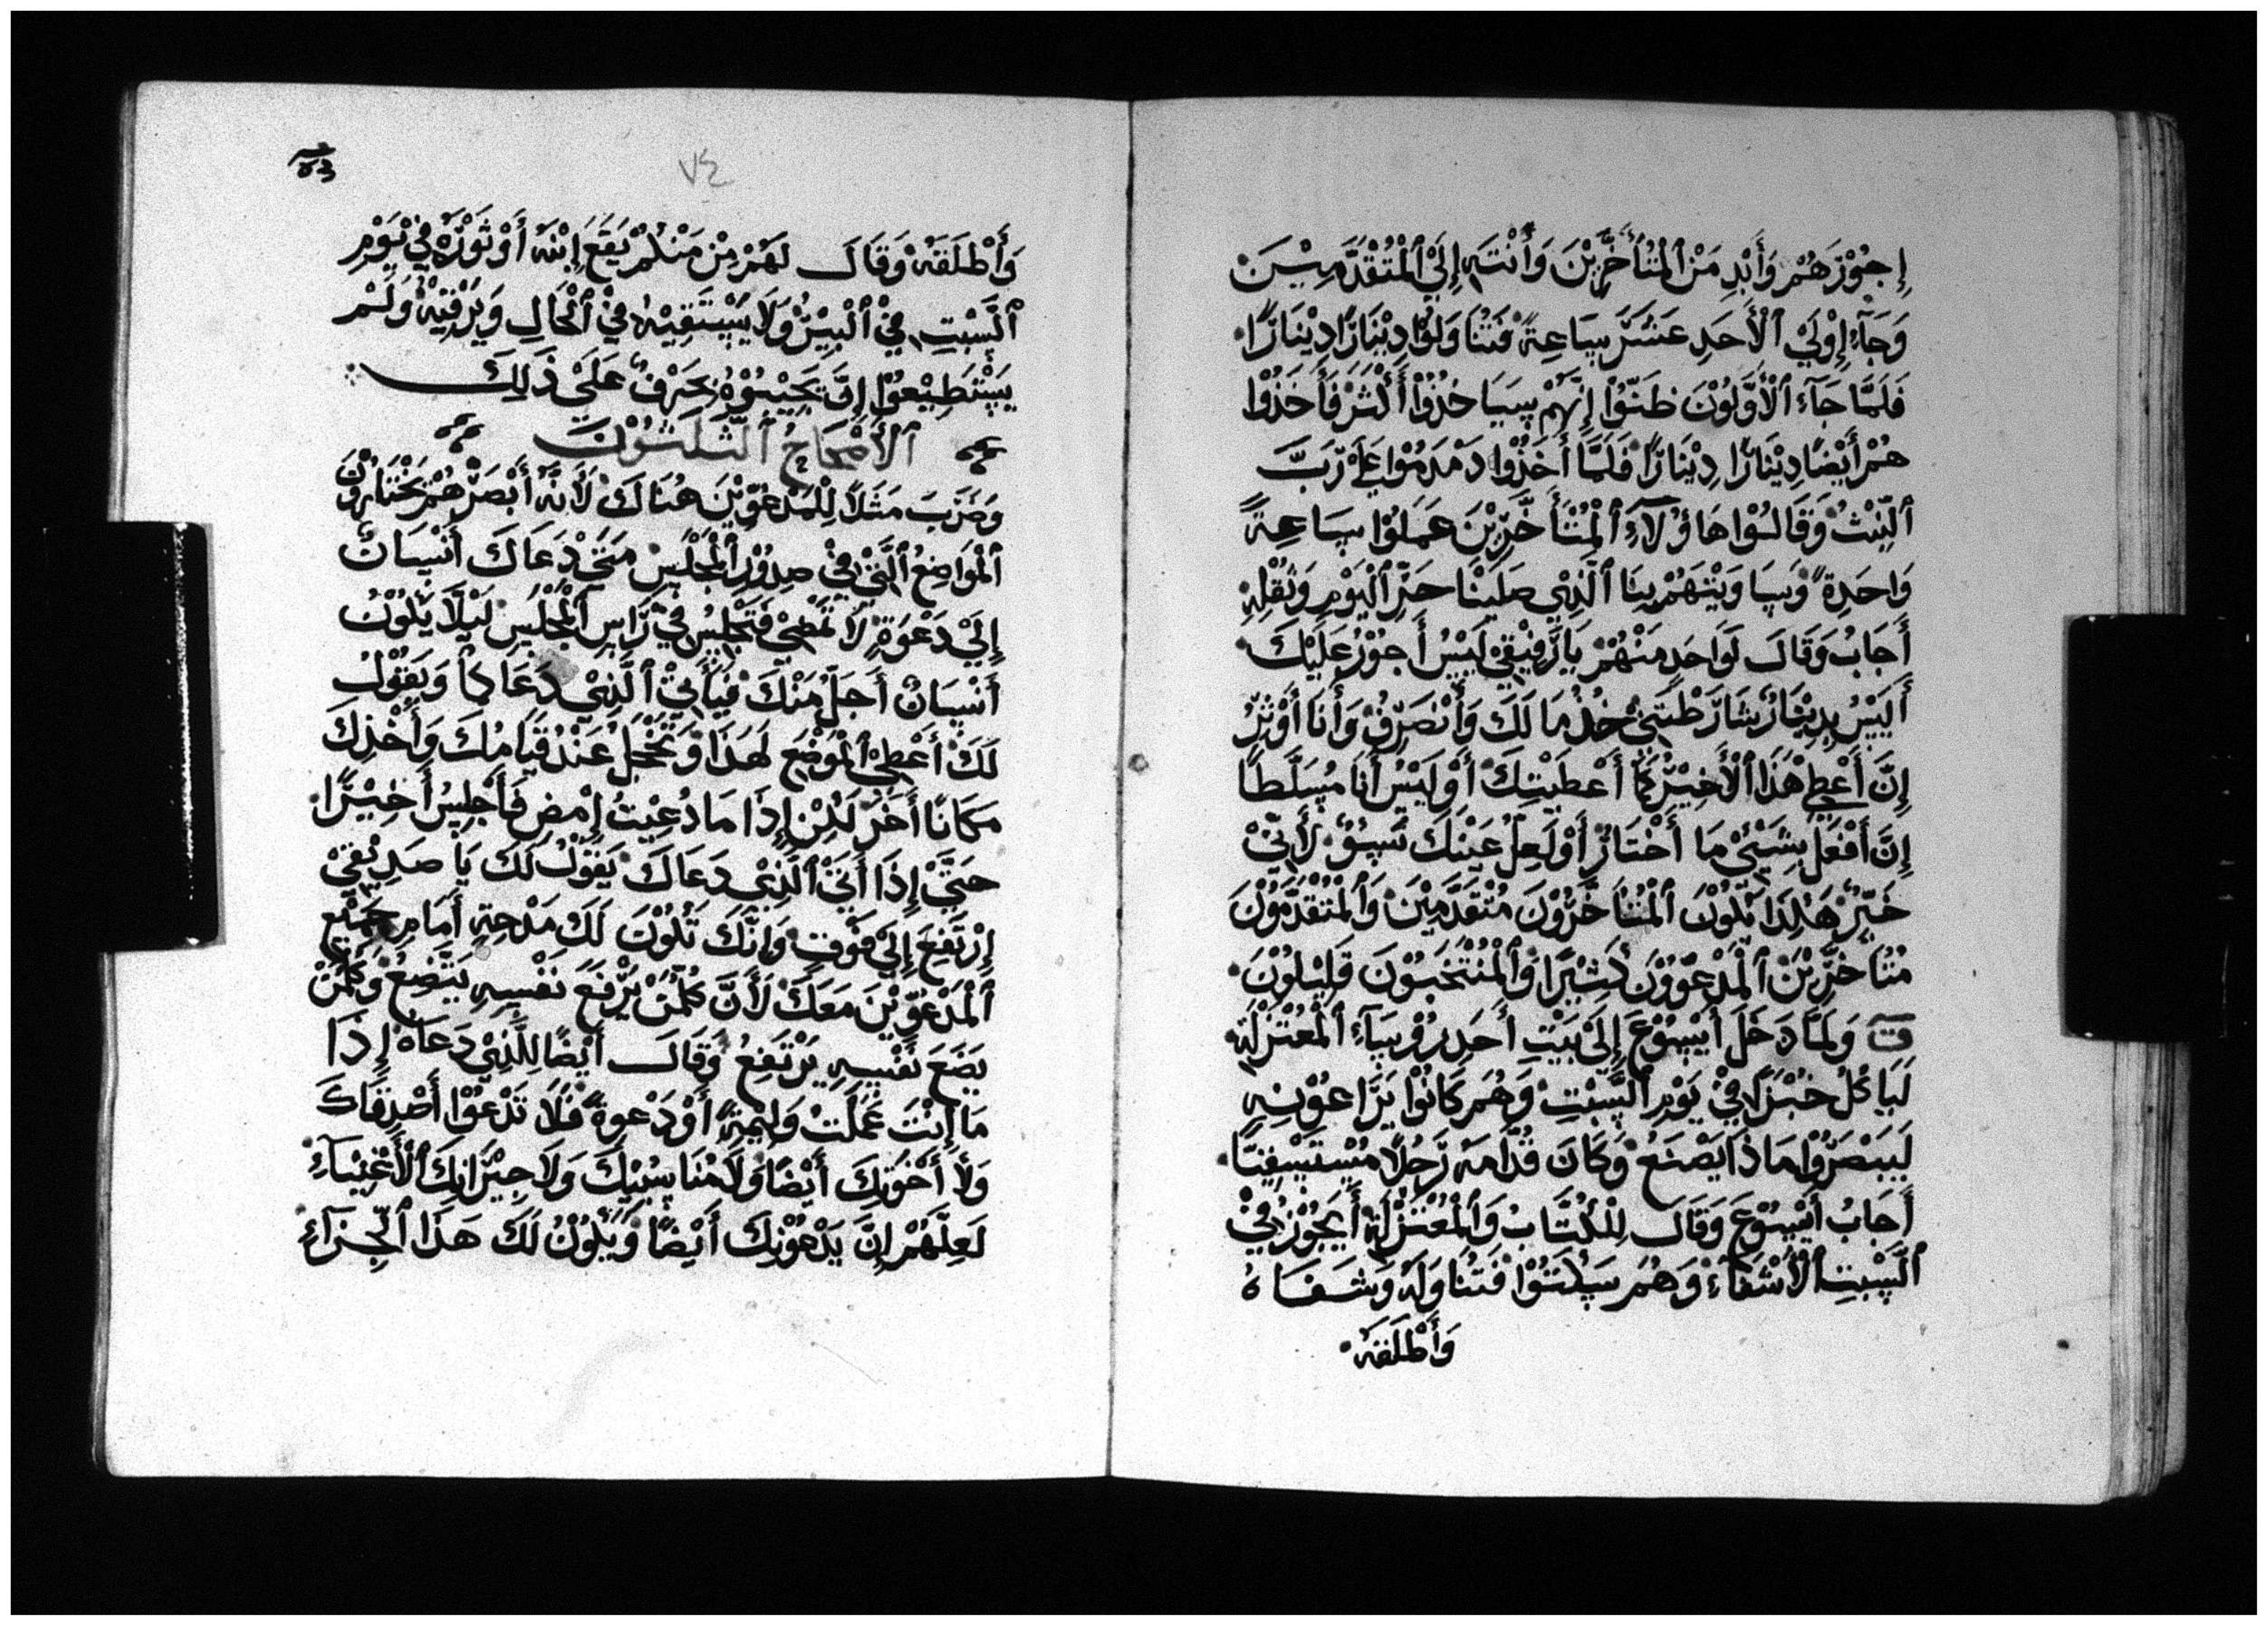 إِجُوْرَهُمْ وَأَبْدِ مَنْ ٱلْمُتَأَخَّرِيْنَ وَأَنْتَهِ إِلَيْ ٱلْمُتْقَدَّمِيْنَ
وَجَآءَ إِوْلَيْ ٱلْأَحَدِ عَشَرَ سَاعِةً فَتَنَاوَلَوْا دِيْنَارًا دِيْنَارًا
فَلَمَّا جَآءَ ٱلْأَوَّلُوْنَ ظَنَّوْا إِنَّهُمْ سَيَاخُذُوْا أَكْثَرْ فَأَخَذُوْا
هُمْ أَيْضًا دِيْنَارًا دِيْنَارًا فَلَمَّا أَخَذُوْا دَمْدَمُوْا عَلَىْ رَّبَّ
ٱلْبَيْتُ وَقَالُوْا هَاؤُلَآءِ ٱلْمُتْأَخَّرِيْنَ عَمَلُوْا سَاعِةً
وَاحَدِةً وَسَاوَيْتَهُمْ بِنَا ٱلَّذِيْ صَلَيْنَا حَرِّ ٱلْيَوْمِ وَثُقْلِهِ
أَجَابُ وَقَالَ لَوَاحَدِ مَنْهُمْ يَا رَّفِيْقِيْ لَيْسُ أَجُوْرُ عَلَيْكَ
أَلَيْسُ بِدِيْنَارُ شَارَّطْتَنِيْ خُذْ مَا لَكَ وَأَنْصَرِفْ وَأَنَا أَوْثِرُ
إِنَّ أَعْطِيْ هَذَا ٱلْأَخِيْرُ كَمَا أَعْطَيْتِكَ أَوْلَيْسُ أَنَا مُسَلَّطًا
إِنَّ أَفْعَلَ بِشَيْئِيْ مَا أَخْتَارُ أَوْلَعِلَّ عَيْنَكَ تَسُوْ لَأَنِّيْ
خَيِّرٌ هَكَذَا يَكُوْنَ ٱلْمُتَأَخَّرُوْنَ مُتْقَدَّمِيْنَ وَٱلْمُتْقَدَّمُوْنَ
مُتَأَخَّرِيْنَ ٱلْمَدْعَوُّوْنَ كَثِيْرًا وَٱلْمُنْتَخَبُوْنَ قَلِيْلُوْنَ
ق وَلَمَّا دَخَلَ أَيْسُوْعَ إِلَيْ بَيْتِ أَحَدِ رُوْسَآءِ ٱلْمُعْتَزْلَةِ
لَيَاكُلُ خُبْزًا فِيْ يَوْمِ ٱلسَّبْتِ وَهُمْ كَانُوْا يَرَّاعُوْنِهِ
لَيَبْصَرُوْا مَاذَا يَصْنَعُ وَكَانَ قُدَّامَهُ رَّجُلًا مُسْتَسْقِيًا
أَجَابُ أَيْسُوْعَ وَقَالَ لِلْكُتَّابُ وَٱلْمُعْتَزْلَةِ أَيَجُوْزُ فِيْ
ٱلسَّبْتِ ٱلْأَشْفَآءِ وَهُمْ سَكَتُوْا فَتَنَاوَلَهُ وَشَفَاهُ
وَأَطْلَقَهُ
٧٤
وَأَطْلَقَهُ وَقَالَ لَهُمْ مِنْ مَنْكُمْ يَقَعَ إِبْنَهُ أَوْ ثَوْرَهُ فِيْ يَوْمِ
ٱلسَّبْتِ فِيْ ٱلْبِيْرُ وَلَا يَسْتَقِيْهُ فِيْ ٱلْحَالِ وَيَرْقِيْهُ وَلَمْ
يَسْتَطِيْعُوْا إِنَّ يَجِيْبُوْهُ بِحَرْفٌ عَلَىْ ذَلِكَ
ٱلْأَصْحَاحُ ٱلثَّلَثُوْنَ
وَضَرَبَ مَثَلًا لِلْمَدْعُوِّيْنَ هُنَاكَ لَأَنَّهُ أَبْصَرْهُمْ يَخْتَارُوْنَ
ٱلْمَوَاضِعُ ٱلَّتِيْ فِيْ صِدُوْرِ ٱلْمَجْلَسِ مَتَىْ دَعَاكَ أَنْسَانٌ
إِلَيْ دَعْوَةٍ لَا تَمْضِيْ فَتَجْلِسُ فِيْ رَّاسِ ٱلْمَجْلَسِ لَيْلَّا يَكُوْنُ
أَنْسَانٌ أَجَلَّ مَنْكَ فَيَأْتِيْ ٱلَّذِيْ دَعَاكُمَا وَيَقُوْلُ
لَكَ أَعْطِيْ ٱلْمَوْضِعِ لَهَذَا وَتَخْجَلُ عَنْدُ قَيَامُكَ وَأَخْذِكَ
مَكَانًا أَخَرُ لَكِنْ إِذَا مَا دُعِيْتُ إِمْضِ فَأَجْلِسُ أَخِيْرًا
حَتَّيْ إِذَا أَتَيْ ٱلَّذِيْ دَعَاكَ يَقُوْلُ لَكَ يَا صَدِيْقِيْ
إِرْتَفِعَ إِلَيْ فَوْقَ وَإِنَّكَ تَكُوْنَ لَكَ مَدْحِةٍ أَمَامِ جَمِيْعِ
ٱلْمَدْعُوِّيْنَ مَعَكَ لَأَنَّ كُلَّمَنْ يَرْفَعُ نَفْسِهِ يَتَّضِعُ وَكُلَّمَنْ
يَضَعَ نَفْسِهِ يَرْتَفِعُ وَقَالَ أَيْضًا لِلَّذِيْ دَعَاهُ إِذَا
مَا إِنْتَ عَمَلَتْ وَلِيْمِةً أَوْ دَعْوِةً فَلَا تَدْعُوْا أَصْدِقَاكَ
وَلَا أَخْوَتِكَ أَيْضًا وَلَا مُنَاسُبِيْكَ وَلَا جِيْرَانِكَ ٱلْأَغْنِيْآءِ
لَعِلَّهُمْ إِنَّ يَدْعُوْنِكَ أَيْضًا وَيَكُوْنُ لَكَ هَذَا ٱلْجِزَآءِ